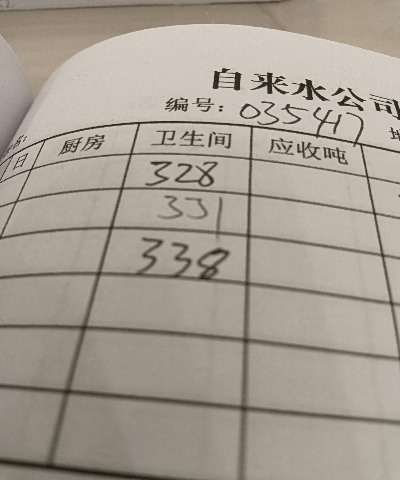 自来水公司
编号：035417
日 厨房 卫生间 应收吨
328
331
338